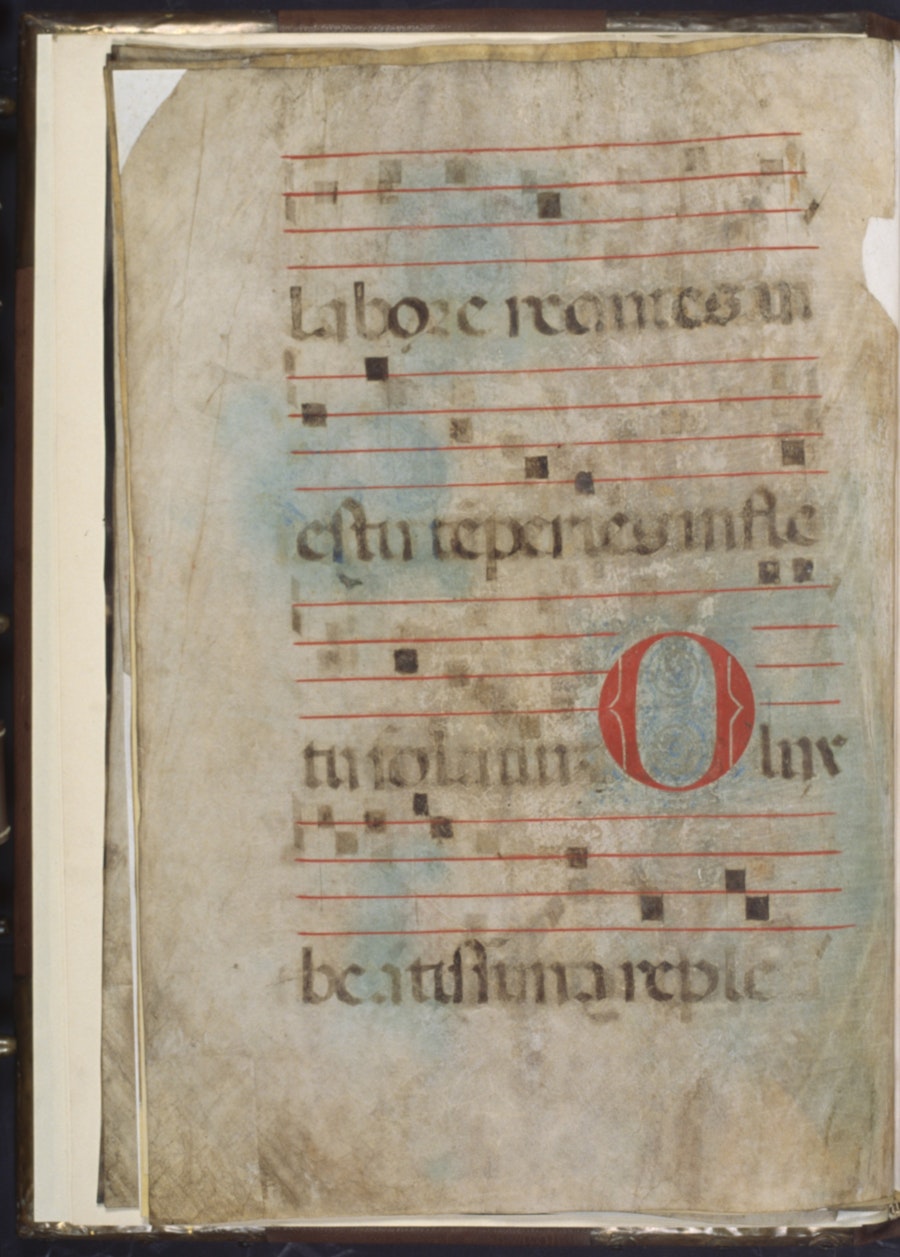 labore requies in
estu tēperies in fle
tu solatium O lux
beatissima reple